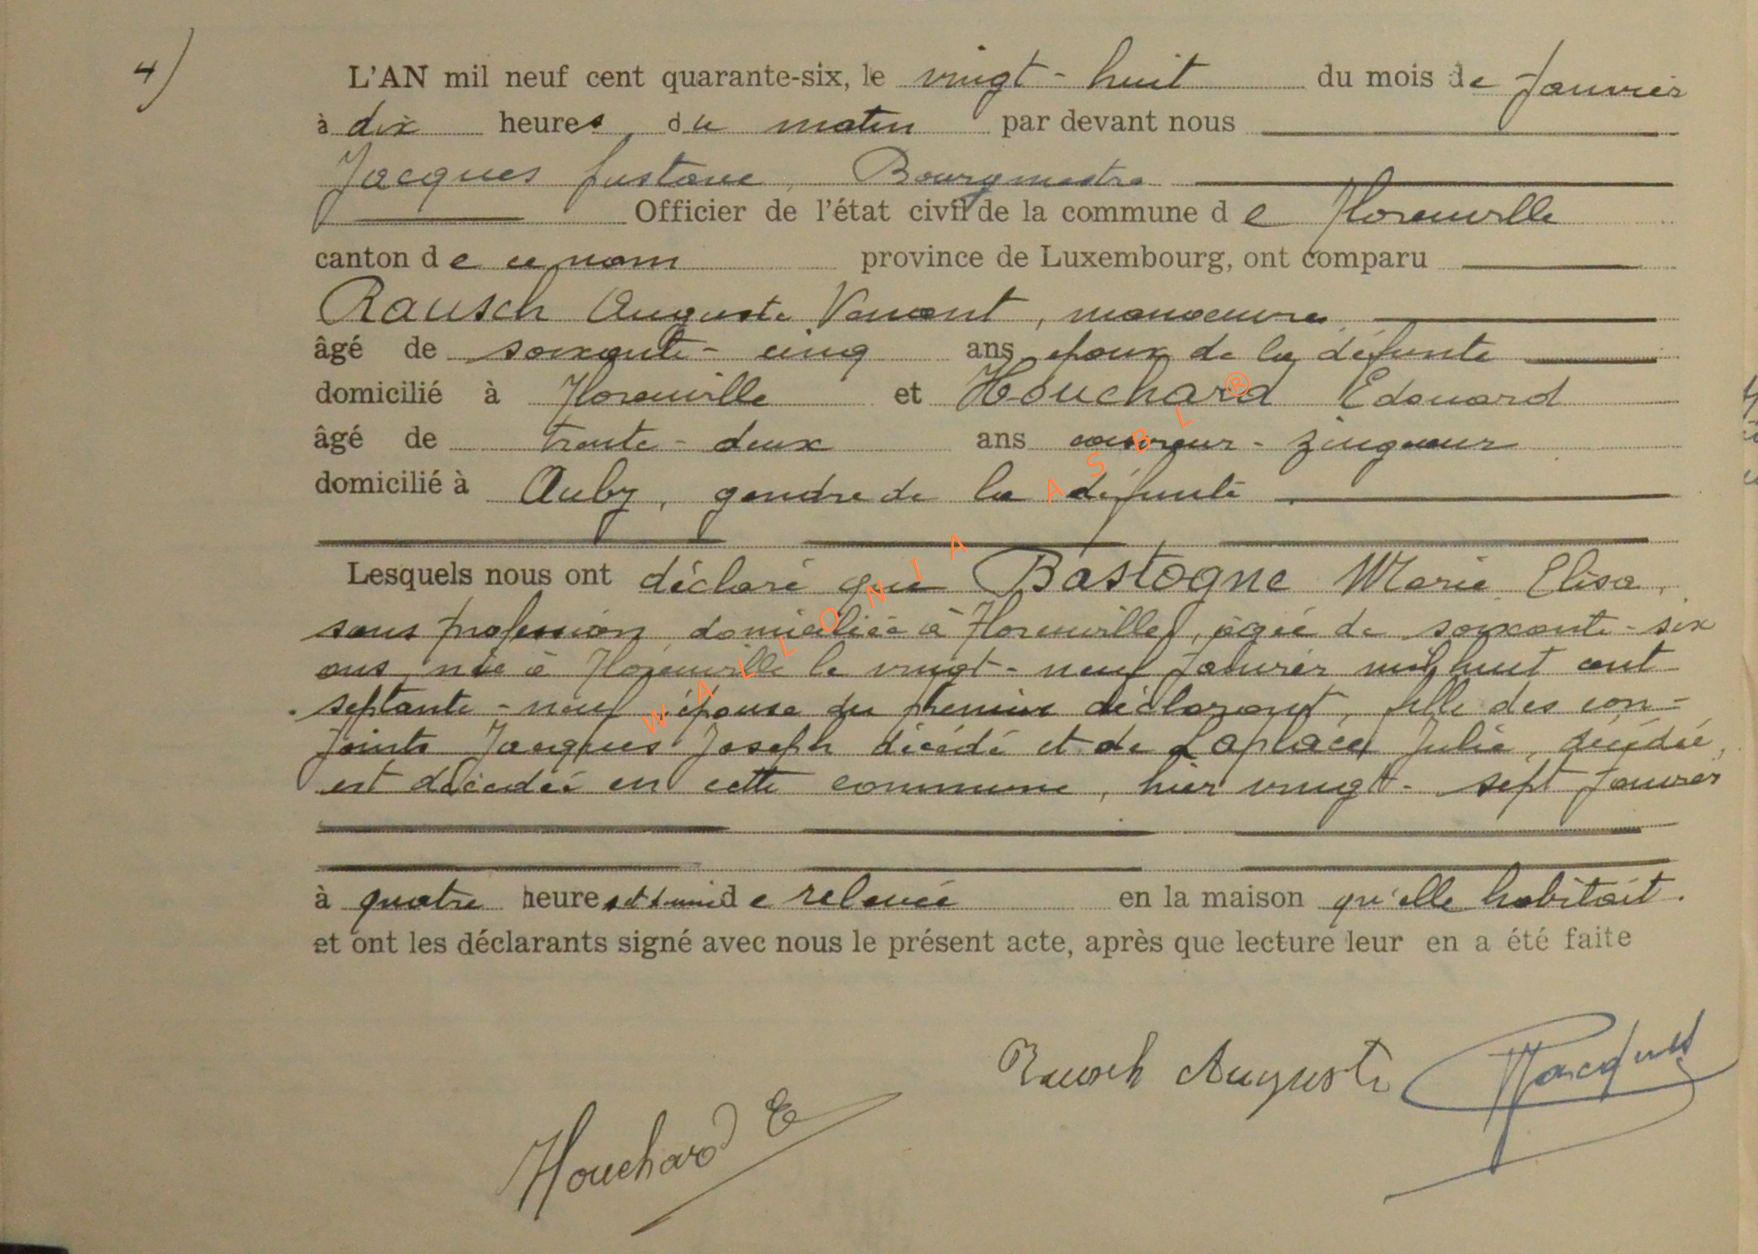 4)
L'AN mil neuf cent quarante-six, le vingt-huit du mois de Janvier
à dix heures, du matin par devant nous
Jacques Gustave, Bourgmestre
Officier de l'état civil de la commune de Florenville
canton de ce nom province de Luxembourg, ont comparu
Rausch Auguste Vincent, manoeuvre
âgé de soixante-cinq ans, époux de la défunte
domicilié à Florenville et Houchard Edouard
âgé de trente-deux ans couvreur-zingueur
domicilié à Auby, gendre de la défunte
Lesquels nous ont déclaré que Bastogne Marie Elisa,
sans profession domiciliée à Florenville, âgée de soixante-six
ans, née à Florenville le vingt-neuf Janvier mil huit cent
septante-neuf, épouse du premier déclarant, fille des con-
joints Jacques Joseph décédé et de Laplace Julie, décédée,
est décédée en cette commune, hier vingt-sept Janvier
à quatre heures et demi de relevée en la maison qu'elle habitait.
et ont les déclarants signé avec nous le présent acte, après que lecture leur en a été faite
Rausch Auguste GJacques
Houchard E
WALLONIA ASBL ®